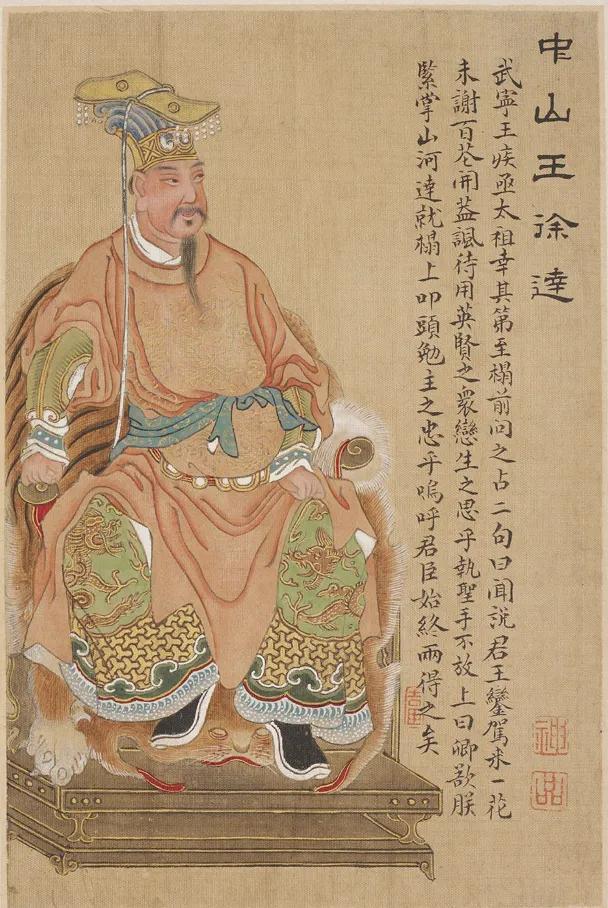 中山王徐達
武寧王疾亟太祖幸其第至榻前问之占二句曰闻說君王鑾駕来一花
未謝百花开葢諷待用英賢之衆戀生之思乎執聖手不放上曰卿欲朕
緊掌山河達就榻上叩頭勉主之忠乎嗚呼君臣始終兩得之矣